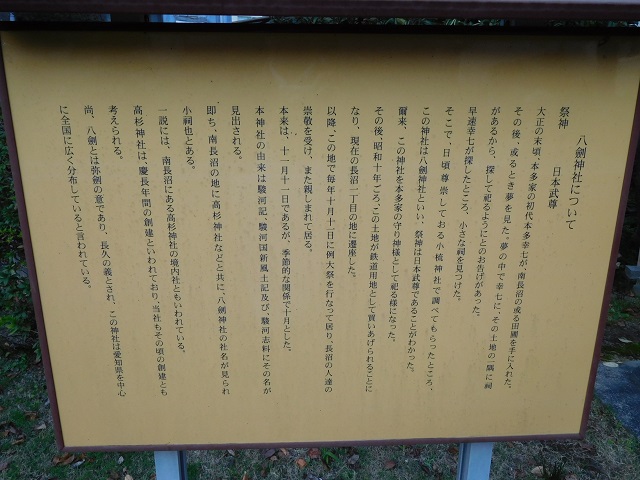 八劍神社について
祭神　日本武尊
大正の末頃、本多家の初代本多幸七が、南長沼の或る田圃を手に入れた。
その後、或るとき夢を見た。夢の中で幸七に、その土地の一隅に祠
があるから、探して祀るようにとのお告げがあった。
早速幸七が探したところ、小さな祠を見つけた。
そこで、日頃尊崇しておる小梳神社で調べてもらったところ、
この神社は八劍神社といい、祭神は日本武尊であることがわかった。
爾来、この神社を本多家の守り神様として祀る様になった。
その後、昭和十年ごろ、この土地が鉄道用地として買いあげられることに
なり、現在の長沼一丁目の地に遷座した。
以降、この地で毎年十月十一日に例大祭を行なって居り、長沼の人達の
崇敬を受け、また親しまれて居る。
本来は、十一月十一日であるが、季節的な関係で十月とした。
本神社の由来は駿河記、駿河国新風土記及び、駿河志料にその名が
見出される。
即ち、南長沼の地に高杉神社などと共に、八劍神社の社名が見られ
小祠也とある。
一説には、南長沼にある高杉神社の境内社ともいわれている。
高杉神社は、慶長年間の創建といわれており、当社もその頃の創建とも
考えられる。
尚、八劍とは弥劍の意であり、長久の義とされ、この神社は愛知県を中心
に全国に広く分布していると言われている。